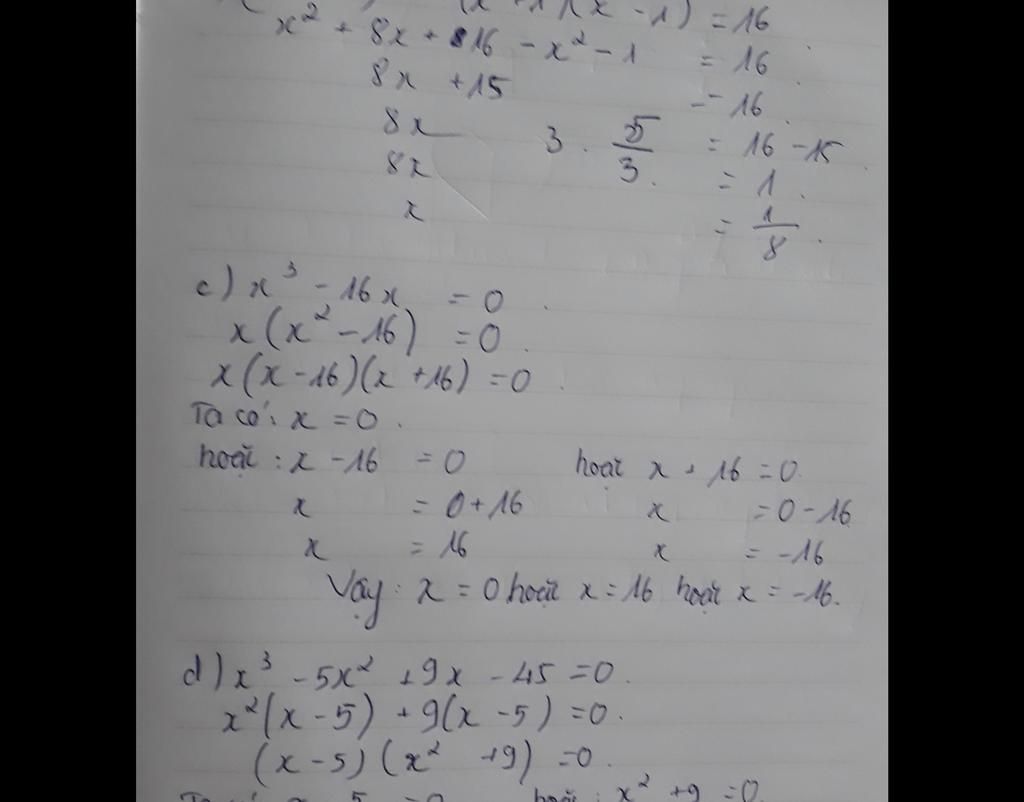 (x + 1)(x - 1) = 16
x² + 8x + 16 - x² - 1 = 16
8x + 15 = 16
8x 3 . 5/3 = 16 - 15
8x = 1
x = 1/8
c) x³ - 16x = 0
x(x² - 16) = 0
x(x - 16)(x + 16) = 0
Ta có: x = 0.
hoặc: x - 16 = 0 hoặc x + 16 = 0
x = 0 + 16 x = 0 - 16
x = 16 x = -16
Vậy: x = 0 hoặc x = 16 hoặc x = -16.
d) x³ - 5x² + 9x - 45 = 0.
x²(x - 5) + 9(x - 5) = 0.
(x - 5)(x² + 9) = 0.
Ta có: x - 5 = 0 hoặc: x² + 9 = 0